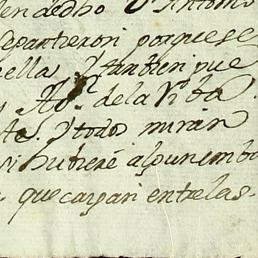 en dedho D.ⁿ Antonio
separtieron porque se
ella. Y tambien que
de la Viba
Y todos miran
si hubiere algun emba
que cargan entre las